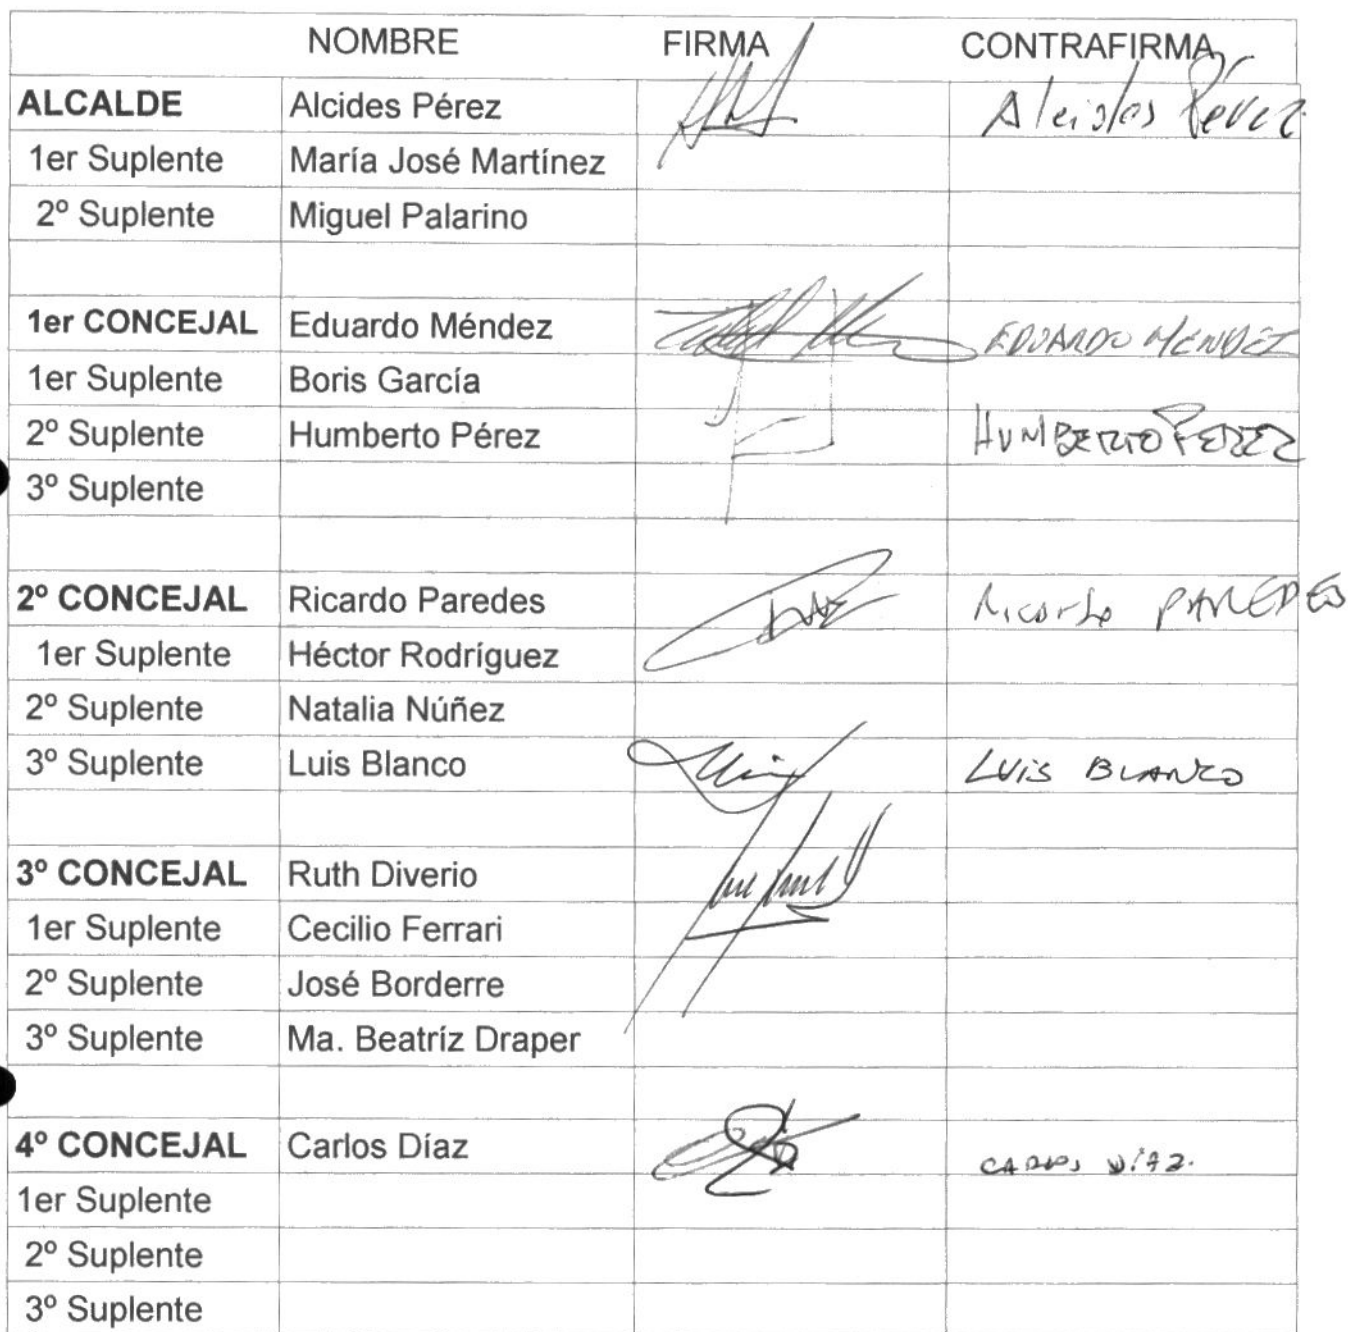 NOMBRE FIRMA CONTRAFIRMA
ALCALDE Alcides Pérez Alcides Pérez
1er Suplente María José Martínez
2º Suplente Miguel Palarino
1er CONCEJAL Eduardo Méndez EDUARDO MENDEZ
1er Suplente Boris García
2º Suplente Humberto Pérez HUMBERTO PEREZ
3º Suplente
2º CONCEJAL Ricardo Paredes Ricardo PAREDES
1er Suplente Héctor Rodríguez
2º Suplente Natalia Núñez
3º Suplente Luis Blanco LUIS BLANCO
3º CONCEJAL Ruth Diverio
1er Suplente Cecilio Ferrari
2º Suplente José Borderre
3º Suplente Ma. Beatríz Draper
4º CONCEJAL Carlos Díaz CARLOS DÍAZ.
1er Suplente
2º Suplente
3º Suplente